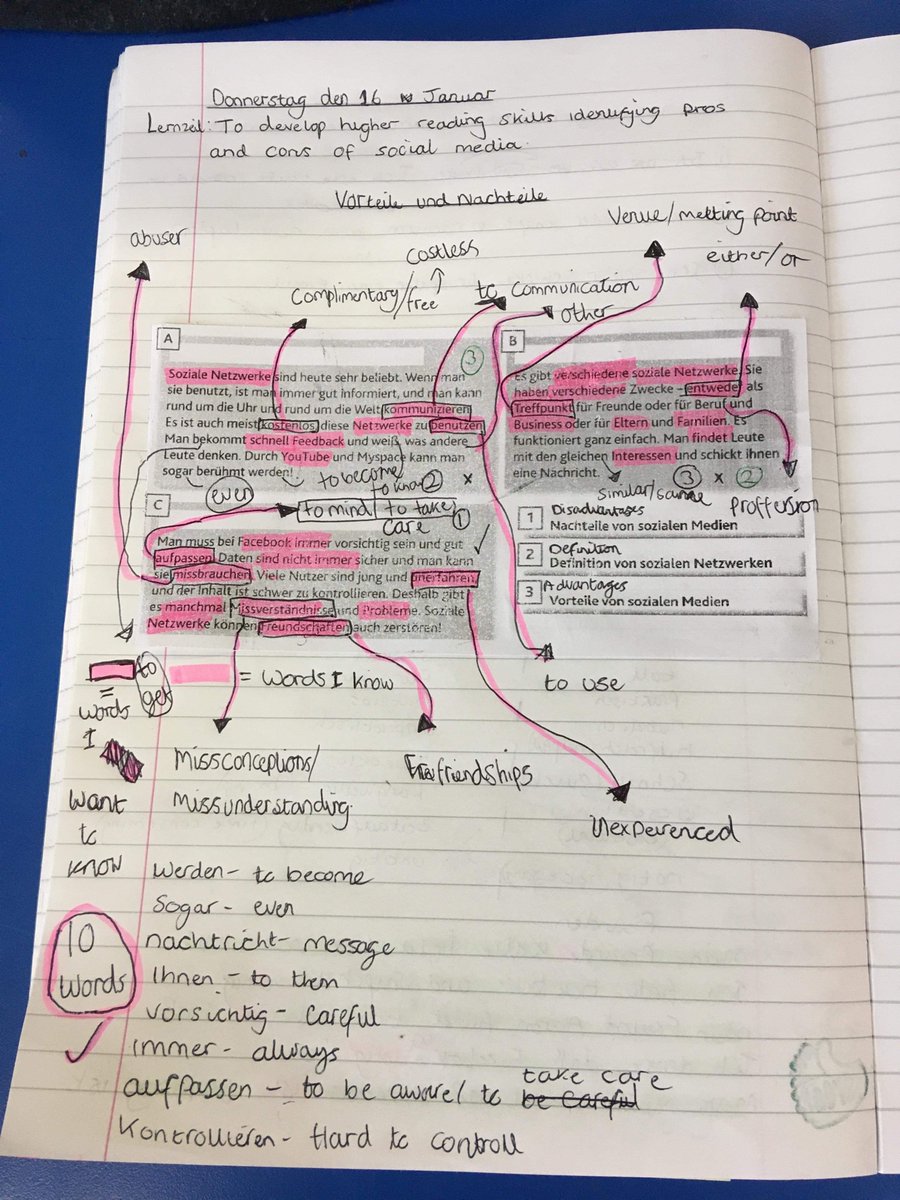 Donnerstag den 16 Januar
Lernzeil: To develop higher reading skills identifying pros
and cons of social media.
Vorteile und Nachteile
abuser
Costless
Complimentary/free
to communication
other
Venue/melting point
either/or
A
3
Soziale Netzwerke sind heute sehr beliebt. Wenn man
sie benutzt, ist man immer gut informiert, und man kann
rund um die Uhr und rund um die Welt kommunizieren.
Es ist auch meist kostenlos, diese Netzwerke zu benutzen.
Man bekommt schnell Feedback und weiß, was andere
Leute denken. Durch YouTube und Myspace kann man
sogar berühmt werden!
even
to become
to know
2
x
B
Es gibt verschiedene soziale Netzwerke. Sie
haben verschiedene Zwecke – entweder als
Treffpunkt für Freunde oder für Beruf und
Business oder für Eltern und Familien. Es
funktioniert ganz einfach. Man findet Leute
mit den gleichen Interessen und schickt ihnen
eine Nachricht.
3 x 2
Similar/same
Proffersion
C
to mind/to take
care
1
Man muss bei Facebook immer vorsichtig sein und gut
aufpassen. Daten sind nicht immer sicher und man kann
sie missbrauchen. Viele Nutzer sind jung und unerfahren,
und der Inhalt ist schwer zu kontrollieren. Deshalb gibt
es manchmal Missverständnisse und Probleme. Soziale
Netzwerke können Freundschaften auch zerstören!
1
Disadvantages
Nachteile von sozialen Medien
2
Definition
Definition von sozialen Netzwerken
3
Advantages
Vorteile von sozialen Medien
to
get
= words I know
=
words
I
want
to
know
to use
Missconceptions/
Missunderstanding.
friendships
Werden - to become
Sogar - even
nachtricht - message
Ihnen - to them
Vorsichtig - Careful
immer - always
take care
aufpassen - to be aware/ to be careful
Kontrollieren - Hard to controll
10
words